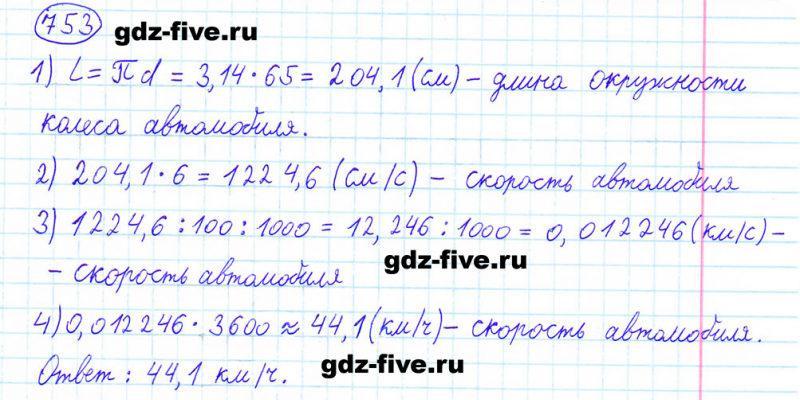 753 gdz-five.ru
1) L = πd = 3,14 · 65 = 204,1 (см) – длина окружности
колеса автомобиля.
2) 204,1 · 6 = 1224,6 (см/с) – скорость автомобиля
3) 1224,6 : 100 : 1000 = 12,246 : 1000 = 0,012246 (км/с) –
gdz-five.ru
– скорость автомобиля
4) 0,012246 · 3600 ≈ 44,1 (км/ч) – скорость автомобиля.
Ответ: 44,1 км/ч. gdz-five.ru